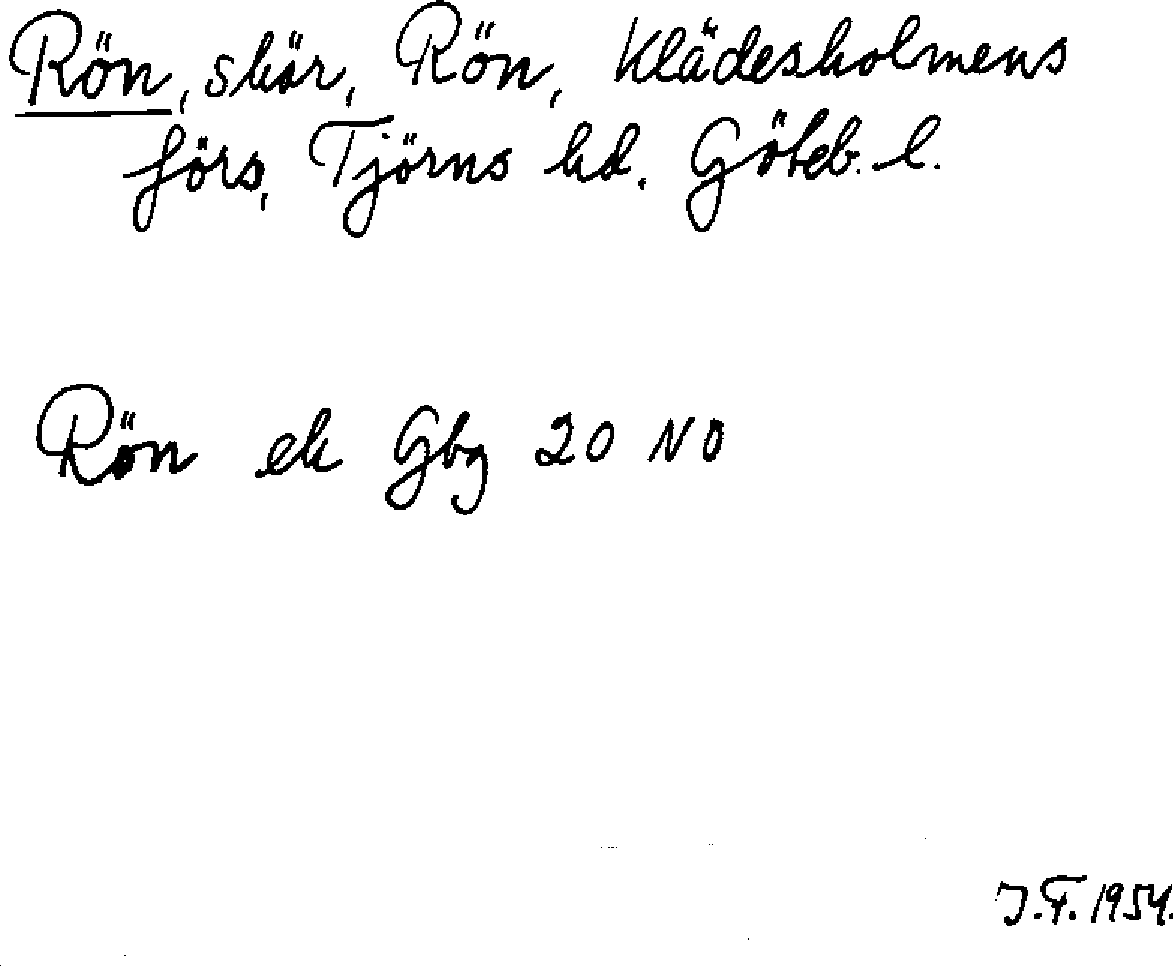 Rön, skär, Rön, Klädesholmens
förs, Tjörns hd. Göteb. l.
Rön ek Gbg 20 NO
J.F. 1954.